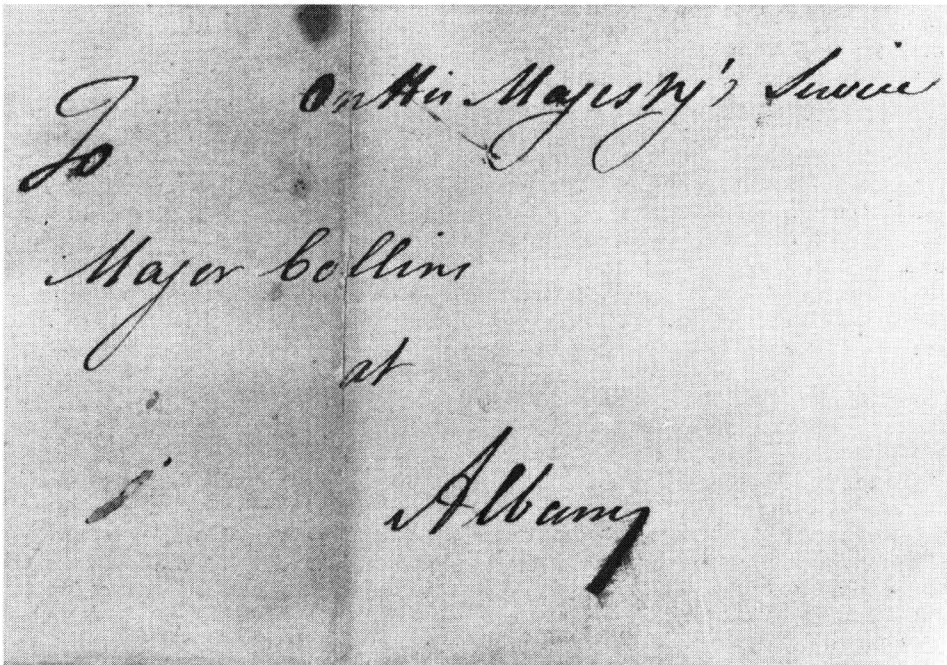 On His Majesty's Service
To
Major Collins
at
Albany